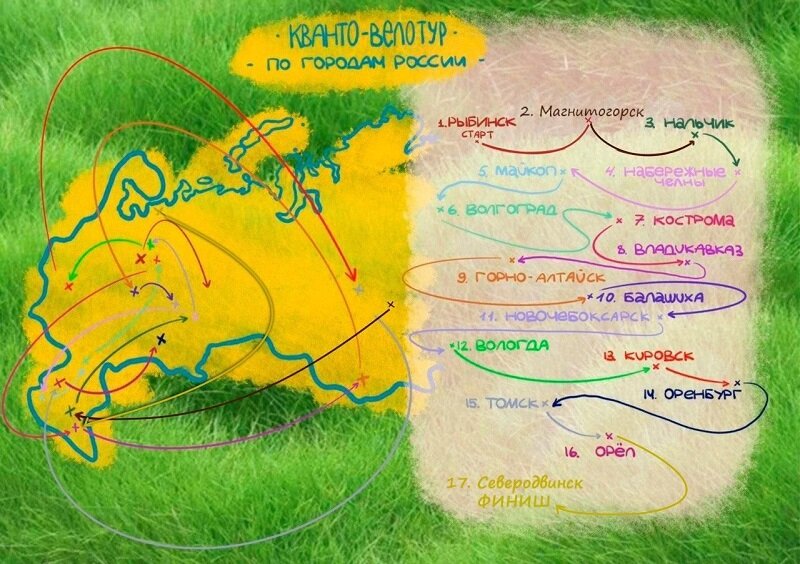 · КВАНТО-ВЕЛОТУР ·
- ПО ГОРОДАМ РОССИИ -
1. РЫБИНСК
СТАРТ
2. Магнитогорск
3. НАЛЬЧИК
4. НАБЕРЕЖНЫЕ
ЧЕЛНЫ
5. МАЙКОП
6. ВОЛГОГРАД
7. КОСТРОМА
8. ВЛАДИКАВКАЗ
9. ГОРНО-АЛТАЙСК
10. БАЛАШИХА
11. НОВОЧЕБОКСАРСК
12. ВОЛОГДА
13. КИРОВСК
14. ОРЕНБУРГ
15. ТОМСК
16. ОРЁЛ
17. Северодвинск
ФИНИШ